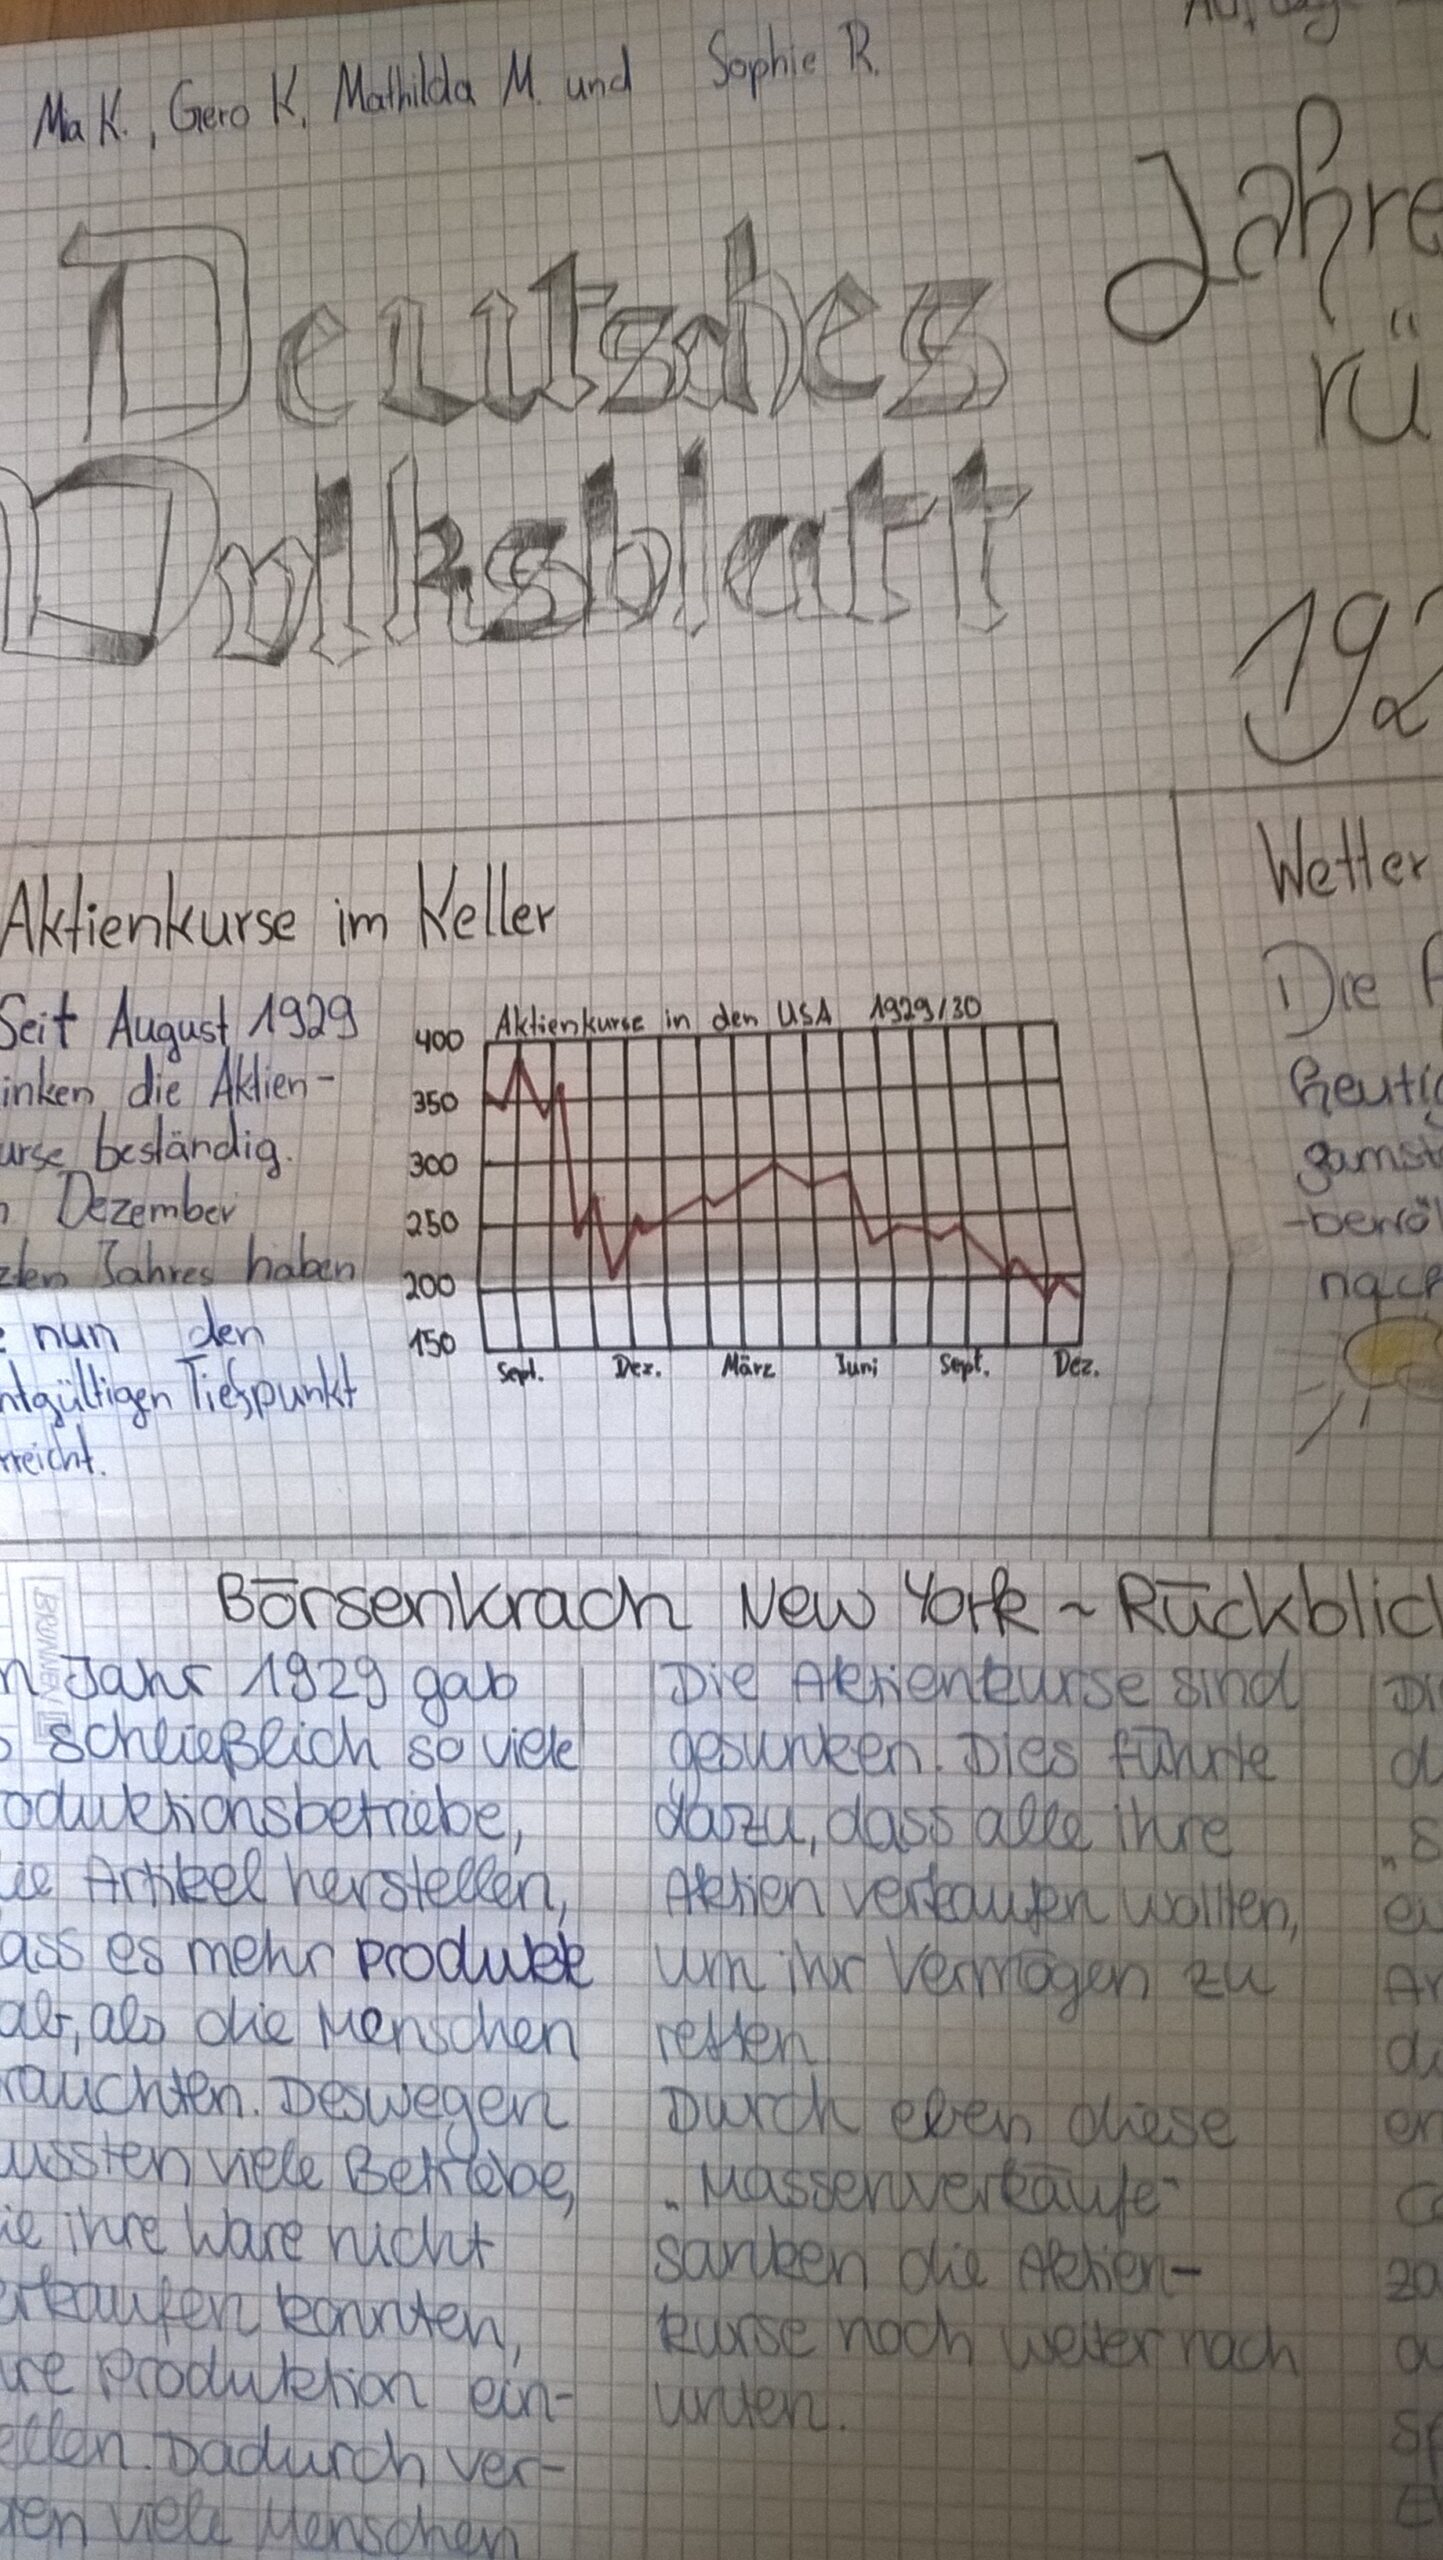 Mia K., Gero K, Mathilda M. und Sophie R.
Deutsches
Volksblatt
Jahre
rü
192
Aktienkurse im Keller
Seit August 1929
inken die Aktien-
urse beständig.
Dezember
zten Jahres haben
nun den
ntgültigen Tiefpunkt
rreicht.
Aktienkurse in den USA 1929/30
400
350
300
250
200
150
Sept. Dez. März Juni Sept. Dez.
Wetter
Die
heutig
samst
-bewöl
nach
BRUNNEN
Börsenkrach New York ~ Rückblic
n Jahr 1929 gab
s schließlich so viele
oduktionsbetriebe,
ie Artikel herstellen,
ass es mehr Produkte
ab, als die Menschen
rauchten. Deswegen
ussten viele Betriebe,
ie ihre Ware nicht
erkaufen konnten,
hre Produktion ein-
ellen. Dadurch ver-
ren viele Menschen
Die Aktienkurse sind
gesunken. Dies führte
dazu, dass alle ihre
Aktien verkaufen wollten,
um ihr Vermögen zu
retten.
Durch eben diese
„Massenverkäufe"
sanken die Aktien-
kurse noch weiter nach
unten.